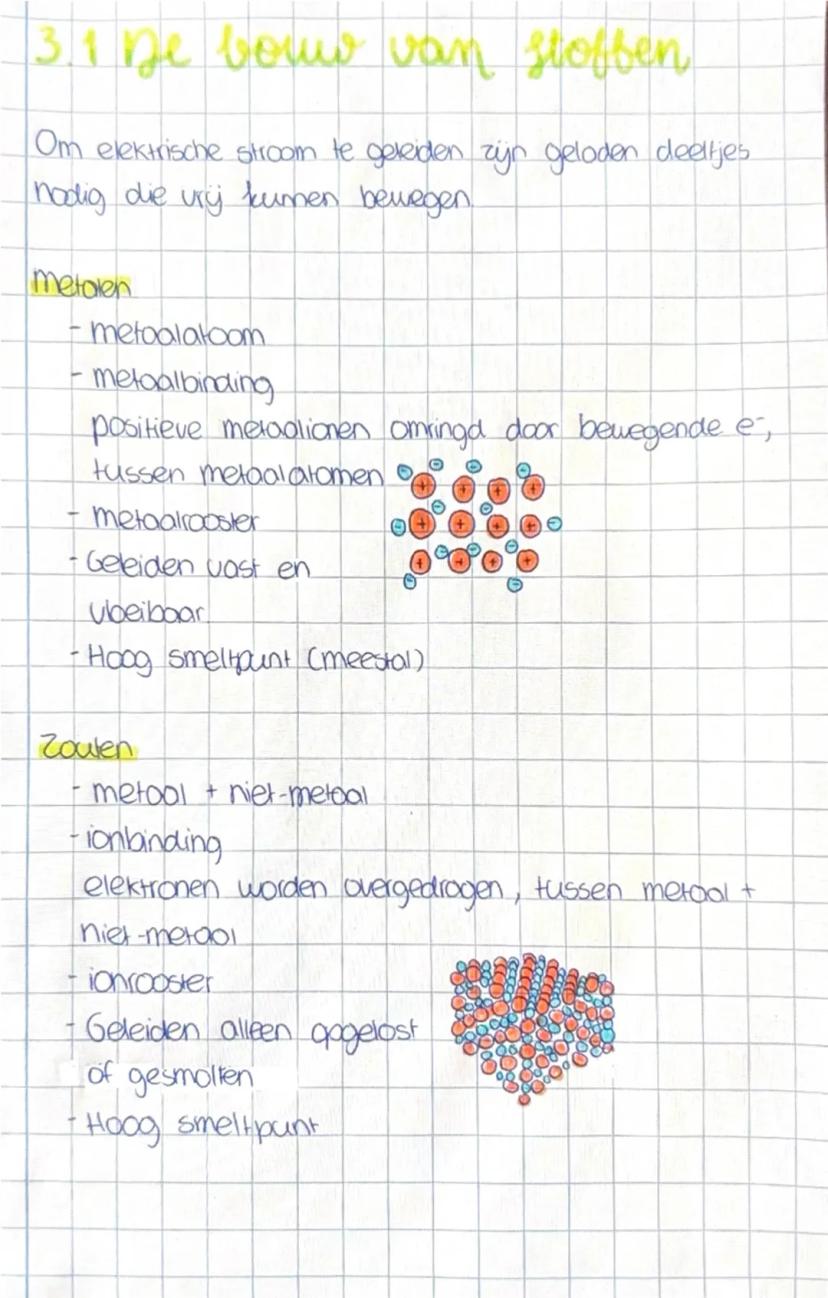 3.1 De bouw van stoffen
Om elektrische stroom te geleiden zijn geladen deeltjes
nodig die vrij kunnen bewegen
Metalen
- metaalatoom
- metaalbinding
positieve metaalionen omringd door bewegende e⁻,
tussen metaalatomen
- metaalrooster
- Geleiden vast en
vloeibaar
- Hoog smeltpunt (meestal)
Zouten
- metaal + niet-metaal
- ionbinding
elektronen worden overgedragen, tussen metaal +
niet-metaal
- ionrooster
- Geleiden alleen opgelost
of gesmolten
- Hoog smeltpunt